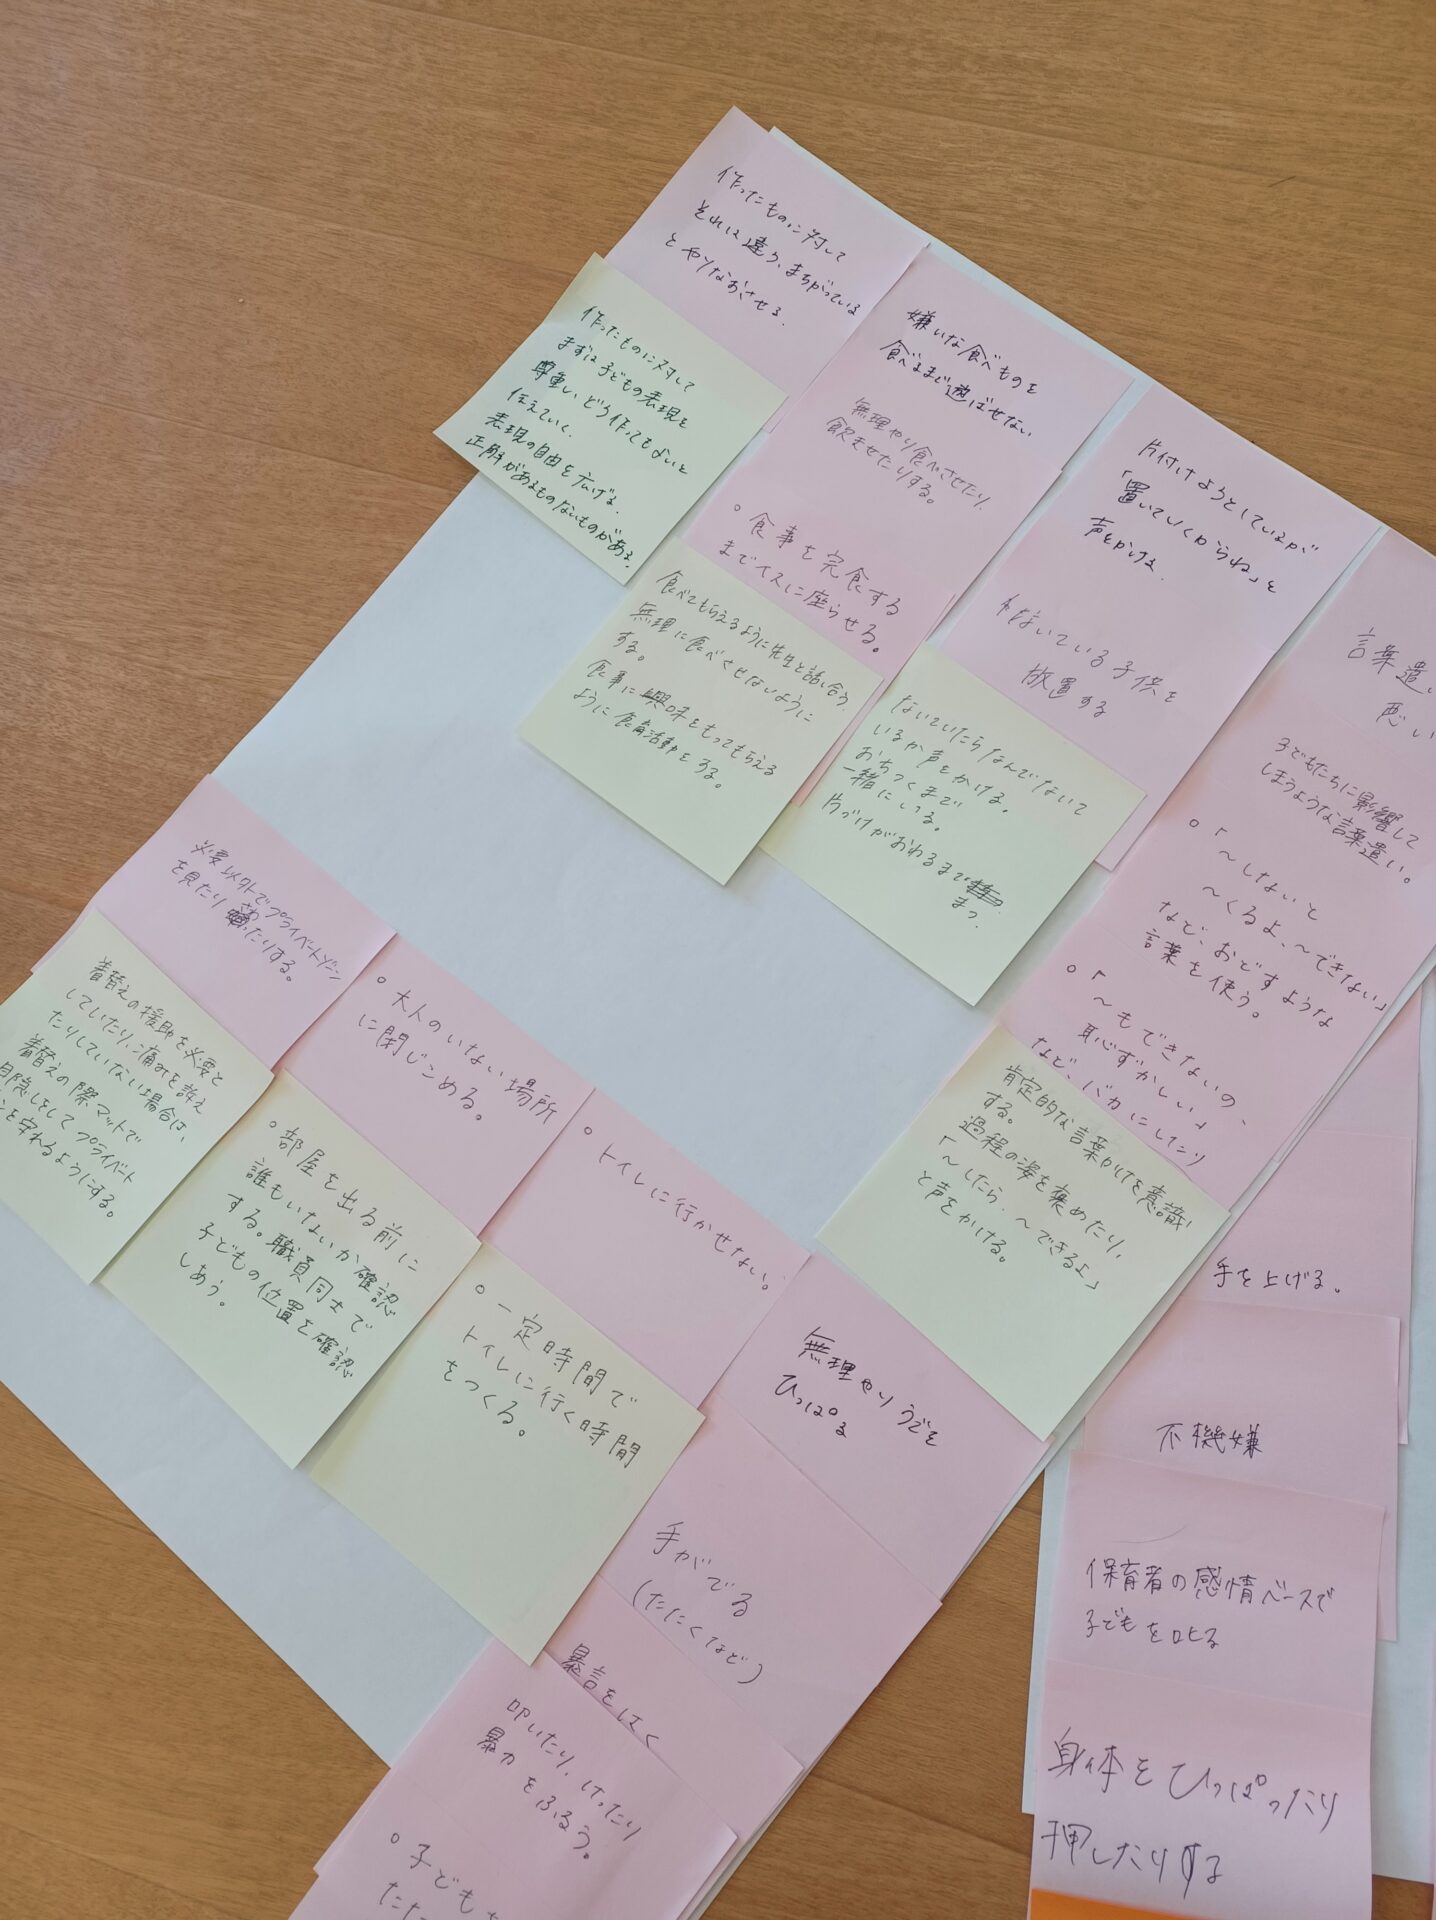 作ったものに対して
それは違う、まちがっている
とやりなおさせる.
作ったものに対して
まずは子どもの表現を
尊重し、どう作ってもよいと
伝えていく.
表現の自由を広げる.
正解があるものないものがある.
嫌いな食べものを
食べるまで遊ばせない
無理やり食べさせたり、
飲ませたりする。
○ 食事を完食する
までイスに座らせる。
食べてもらえるように先生と話し合う
無理に食べさせないように
する。
食事に興味をもってもらえる
ように食育活動をする。
片付けようとしているが
「置いていくからね」と
声をかける.
ないている子供を
放置する
ないていたらなんでないて
いるか声をかける。
おちつくまで
一緒にいる。
片づけがおわるまで
まつ.
言葉遣い
悪い
子どもたちに影響して
しまうような言葉遣い。
○「
〜しないと
〜くるよ、〜できない」
など、おどすような
言葉を使う。
○「
〜もできないの、
恥ずかしい」
など、バカにしたり
肯定的な言葉かけを意識
する。
過程の姿を褒めたり、
「〜したら、〜できるよ」
と声をかける。
必要以外でプライベートゾーン
を見たりさわったりする。
着替えの援助を必要と
していたり、痛みを訴え
たりしていない場合は、
着替えの際マットで
目隠しをしてプライベート
ンを守れるようにする。
○ 大人のいない場所
に閉じこめる。
○ 部屋を出る前に
誰もいないか確認
する。職員同士で
子どもの位置を確認
しあう。
○ トイレに行かせない。
○ 一定時間で
トイレに行く時間
をつくる。
無理やりうでを
ひっぱる
手がでる
(たたくなど)
暴言をはく
叩いたり、けったり
暴力をふるう。
○ 子どもを
たた
手を上げる。
不機嫌
保育者の感情ベースで
子どもを叱る
身体をひっぱったり
押したりする